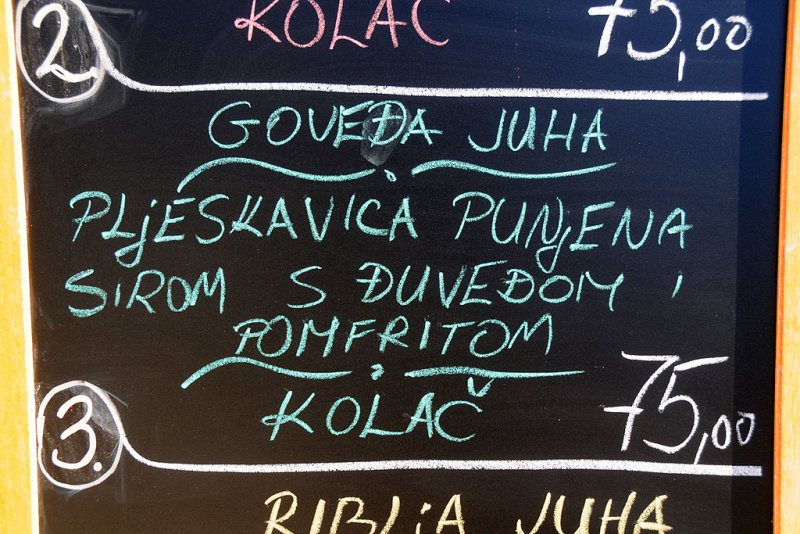 KOLAČ 75,00
2.
GOVEĐA JUHA
PLjESKAVICA PUNjENA
SIROM S ĐUVEĐOM I
POMFRITOM
KOLAČ 75,00
3.
RIBLjA JUHA